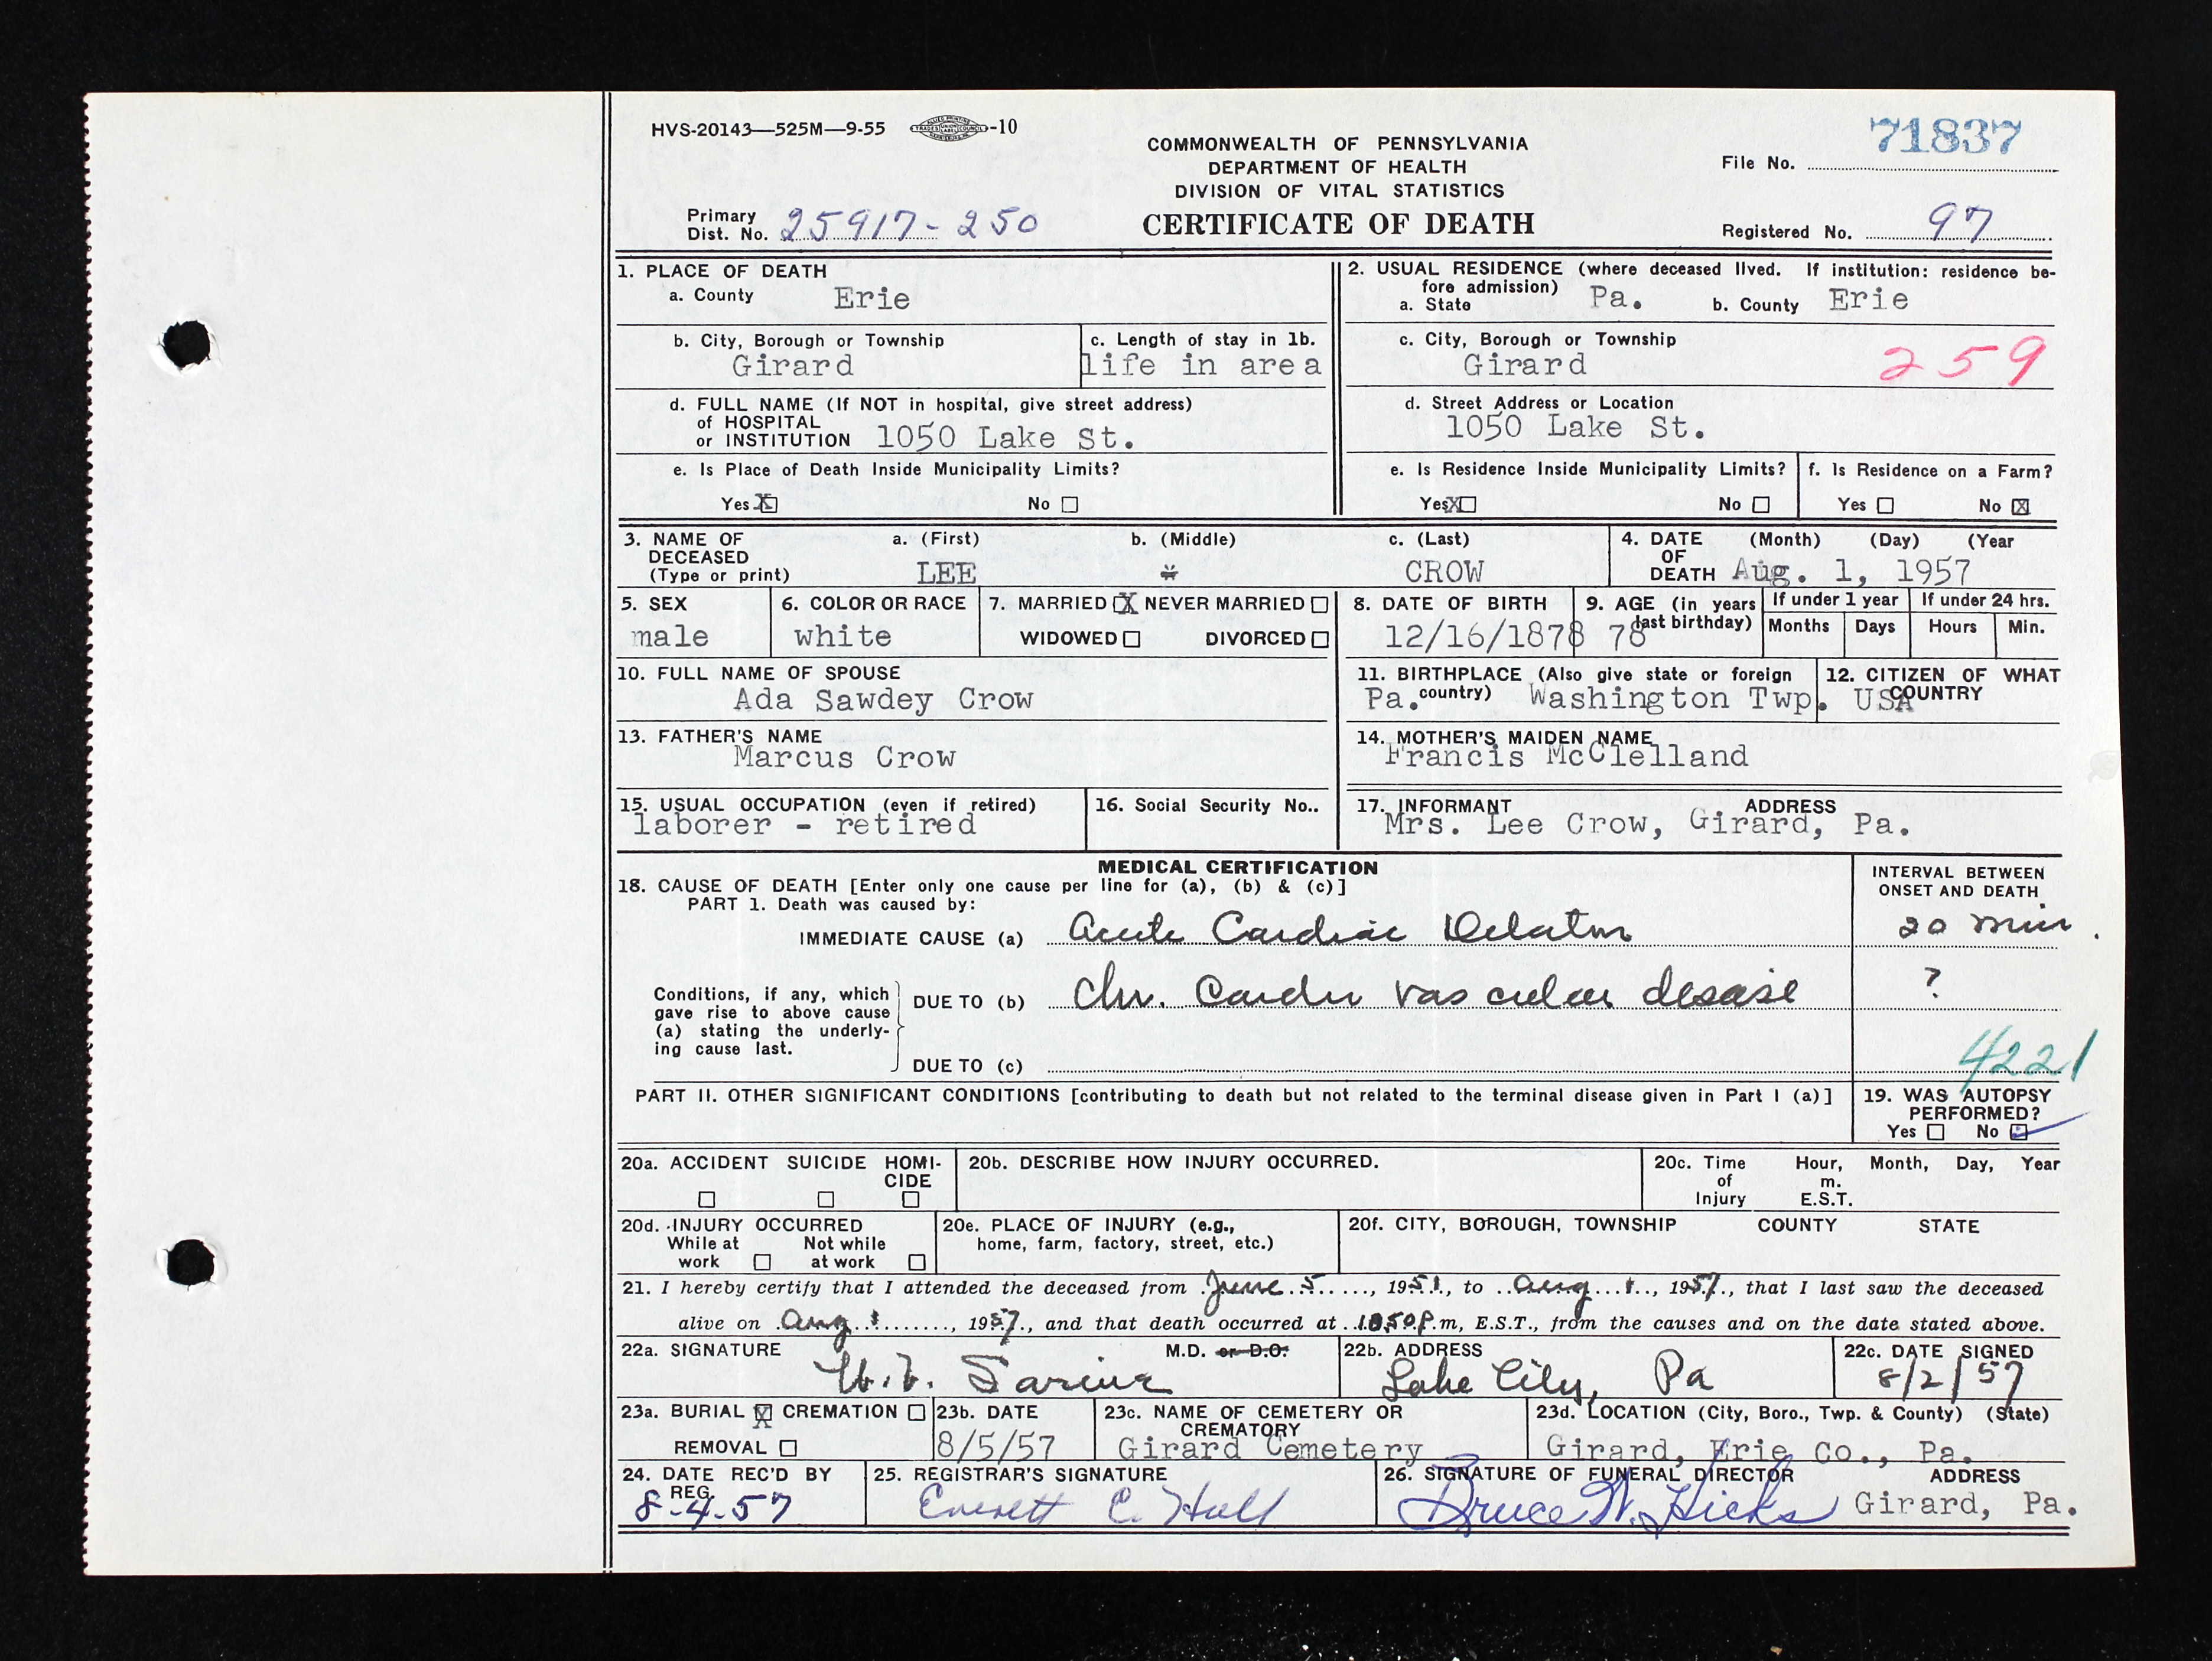 HVS-20143—525M—9-55 -10
71837
COMMONWEALTH OF PENNSYLVANIA
DEPARTMENT OF HEALTH
DIVISION OF VITAL STATISTICS
CERTIFICATE OF DEATH
File No.
Primary
Dist. No. 25917-250
Registered No. 97
1. PLACE OF DEATH
a. County Erie
2. USUAL RESIDENCE (where deceased lived. If institution: residence be-
fore admission)
a. State Pa. b. County Erie
b. City, Borough or Township
Girard
c. Length of stay in 1b.
life in area
c. City, Borough or Township
Girard 259
d. FULL NAME (If NOT in hospital, give street address)
of HOSPITAL
or INSTITUTION 1050 Lake St.
d. Street Address or Location
1050 Lake St.
e. Is Place of Death Inside Municipality Limits?
Yes X No
e. Is Residence Inside Municipality Limits?
Yes X No
f. Is Residence on a Farm?
Yes No X
3. NAME OF
DECEASED
(Type or print)
a. (First) b. (Middle) c. (Last)
LEE CROW
4. DATE (Month) (Day) (Year
OF
DEATH Aug. 1, 1957
5. SEX
male
6. COLOR OR RACE
white
7. MARRIED X NEVER MARRIED
WIDOWED DIVORCED
8. DATE OF BIRTH
12/16/1878
9. AGE (in years
last birthday)
78
If under 1 year If under 24 hrs.
Months Days Hours Min.
10. FULL NAME OF SPOUSE
Ada Sawdey Crow
11. BIRTHPLACE (Also give state or foreign
country)
Pa. Washington Twp.
12. CITIZEN OF WHAT
COUNTRY
USA
13. FATHER'S NAME
Marcus Crow
14. MOTHER'S MAIDEN NAME
Francis McClelland
15. USUAL OCCUPATION (even if retired)
laborer - retired
16. Social Security No..
17. INFORMANT ADDRESS
Mrs. Lee Crow, Girard, Pa.
MEDICAL CERTIFICATION
18. CAUSE OF DEATH [Enter only one cause per line for (a), (b) & (c)]
PART 1. Death was caused by:
INTERVAL BETWEEN
ONSET AND DEATH
IMMEDIATE CAUSE (a) Acute Cardiac Dilatm
20 min.
Conditions, if any, which
gave rise to above cause
(a) stating the underly-
ing cause last.
DUE TO (b) Chr. Cardio vascular desease
?
DUE TO (c)
4221
PART II. OTHER SIGNIFICANT CONDITIONS [contributing to death but not related to the terminal disease given in Part I (a)]
19. WAS AUTOPSY
PERFORMED?
Yes No
20a. ACCIDENT SUICIDE HOMI-
CIDE
20b. DESCRIBE HOW INJURY OCCURRED.
20c. Time Hour, Month, Day, Year
of m.
Injury E.S.T.
20d. INJURY OCCURRED
While at Not while
work at work
20e. PLACE OF INJURY (e.g.,
home, farm, factory, street, etc.)
20f. CITY, BOROUGH, TOWNSHIP COUNTY STATE
21. I hereby certify that I attended the deceased from June 5, 1951, to Aug 1, 1957, that I last saw the deceased
alive on Aug 1, 1957, and that death occurred at 10.50P.m, E.S.T., from the causes and on the date stated above.
22a. SIGNATURE M.D. or D.O.
22b. ADDRESS
Lake City, Pa
22c. DATE SIGNED
8/2/57
23a. BURIAL X CREMATION
REMOVAL
23b. DATE
8/5/57
23c. NAME OF CEMETERY OR
CREMATORY
Girard Cemetery
23d. LOCATION (City, Boro., Twp. & County) (State)
Girard, Erie Co., Pa.
24. DATE REC'D BY
REG.
8-4-57
25. REGISTRAR'S SIGNATURE
Everett C. Hall
26. SIGNATURE OF FUNERAL DIRECTOR ADDRESS
Bruce W. Hicks Girard, Pa.